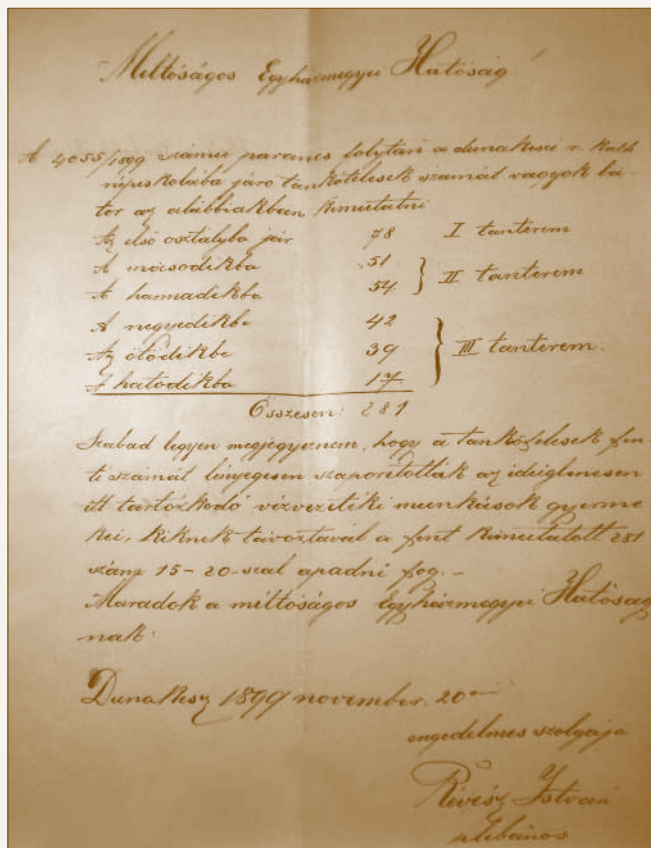 Méltóságos Egyházmegyei Hatóság!
A 4055/1899 számú parancs folytán a dunakeszi r. kath
népiskolába járó tankötelesek számát vagyok bá-
tor az alábbiakban kimutatni
Az első osztályba jár 78 I tanterem
A másodikba 51
A harmadikba 54 } II tanterem
A negyedikbe 42
Az ötödikbe 39 } III tanterem.
A hatodikba 17
Összesen: 281
Szabad legyen megjegyeznem, hogy a tankötelesek fen-
ti számát lényegesen szaporították az ideiglenesen
itt tartózkodó vízvezetéki munkások gyerme
kei, kiknek távoztával a fent kimutatott 281
szám 15-20-szal apadni fog. -
Maradok a méltóságos Egyházmegyei Hatóság
nak
Dunakesz 1899 november. 20-án
engedelmes szolgája
Révész István
plébános